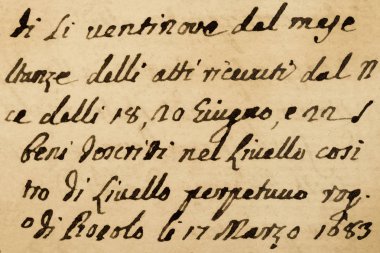 di li ventinove del mese
stanze delli atti ricevuti dal N
ce delli 18, 20 Giugno, e 22 S
beni descritti nel Livello cosi
tro di Livello perpetuo rog.
o di li 17 Marzo 1683